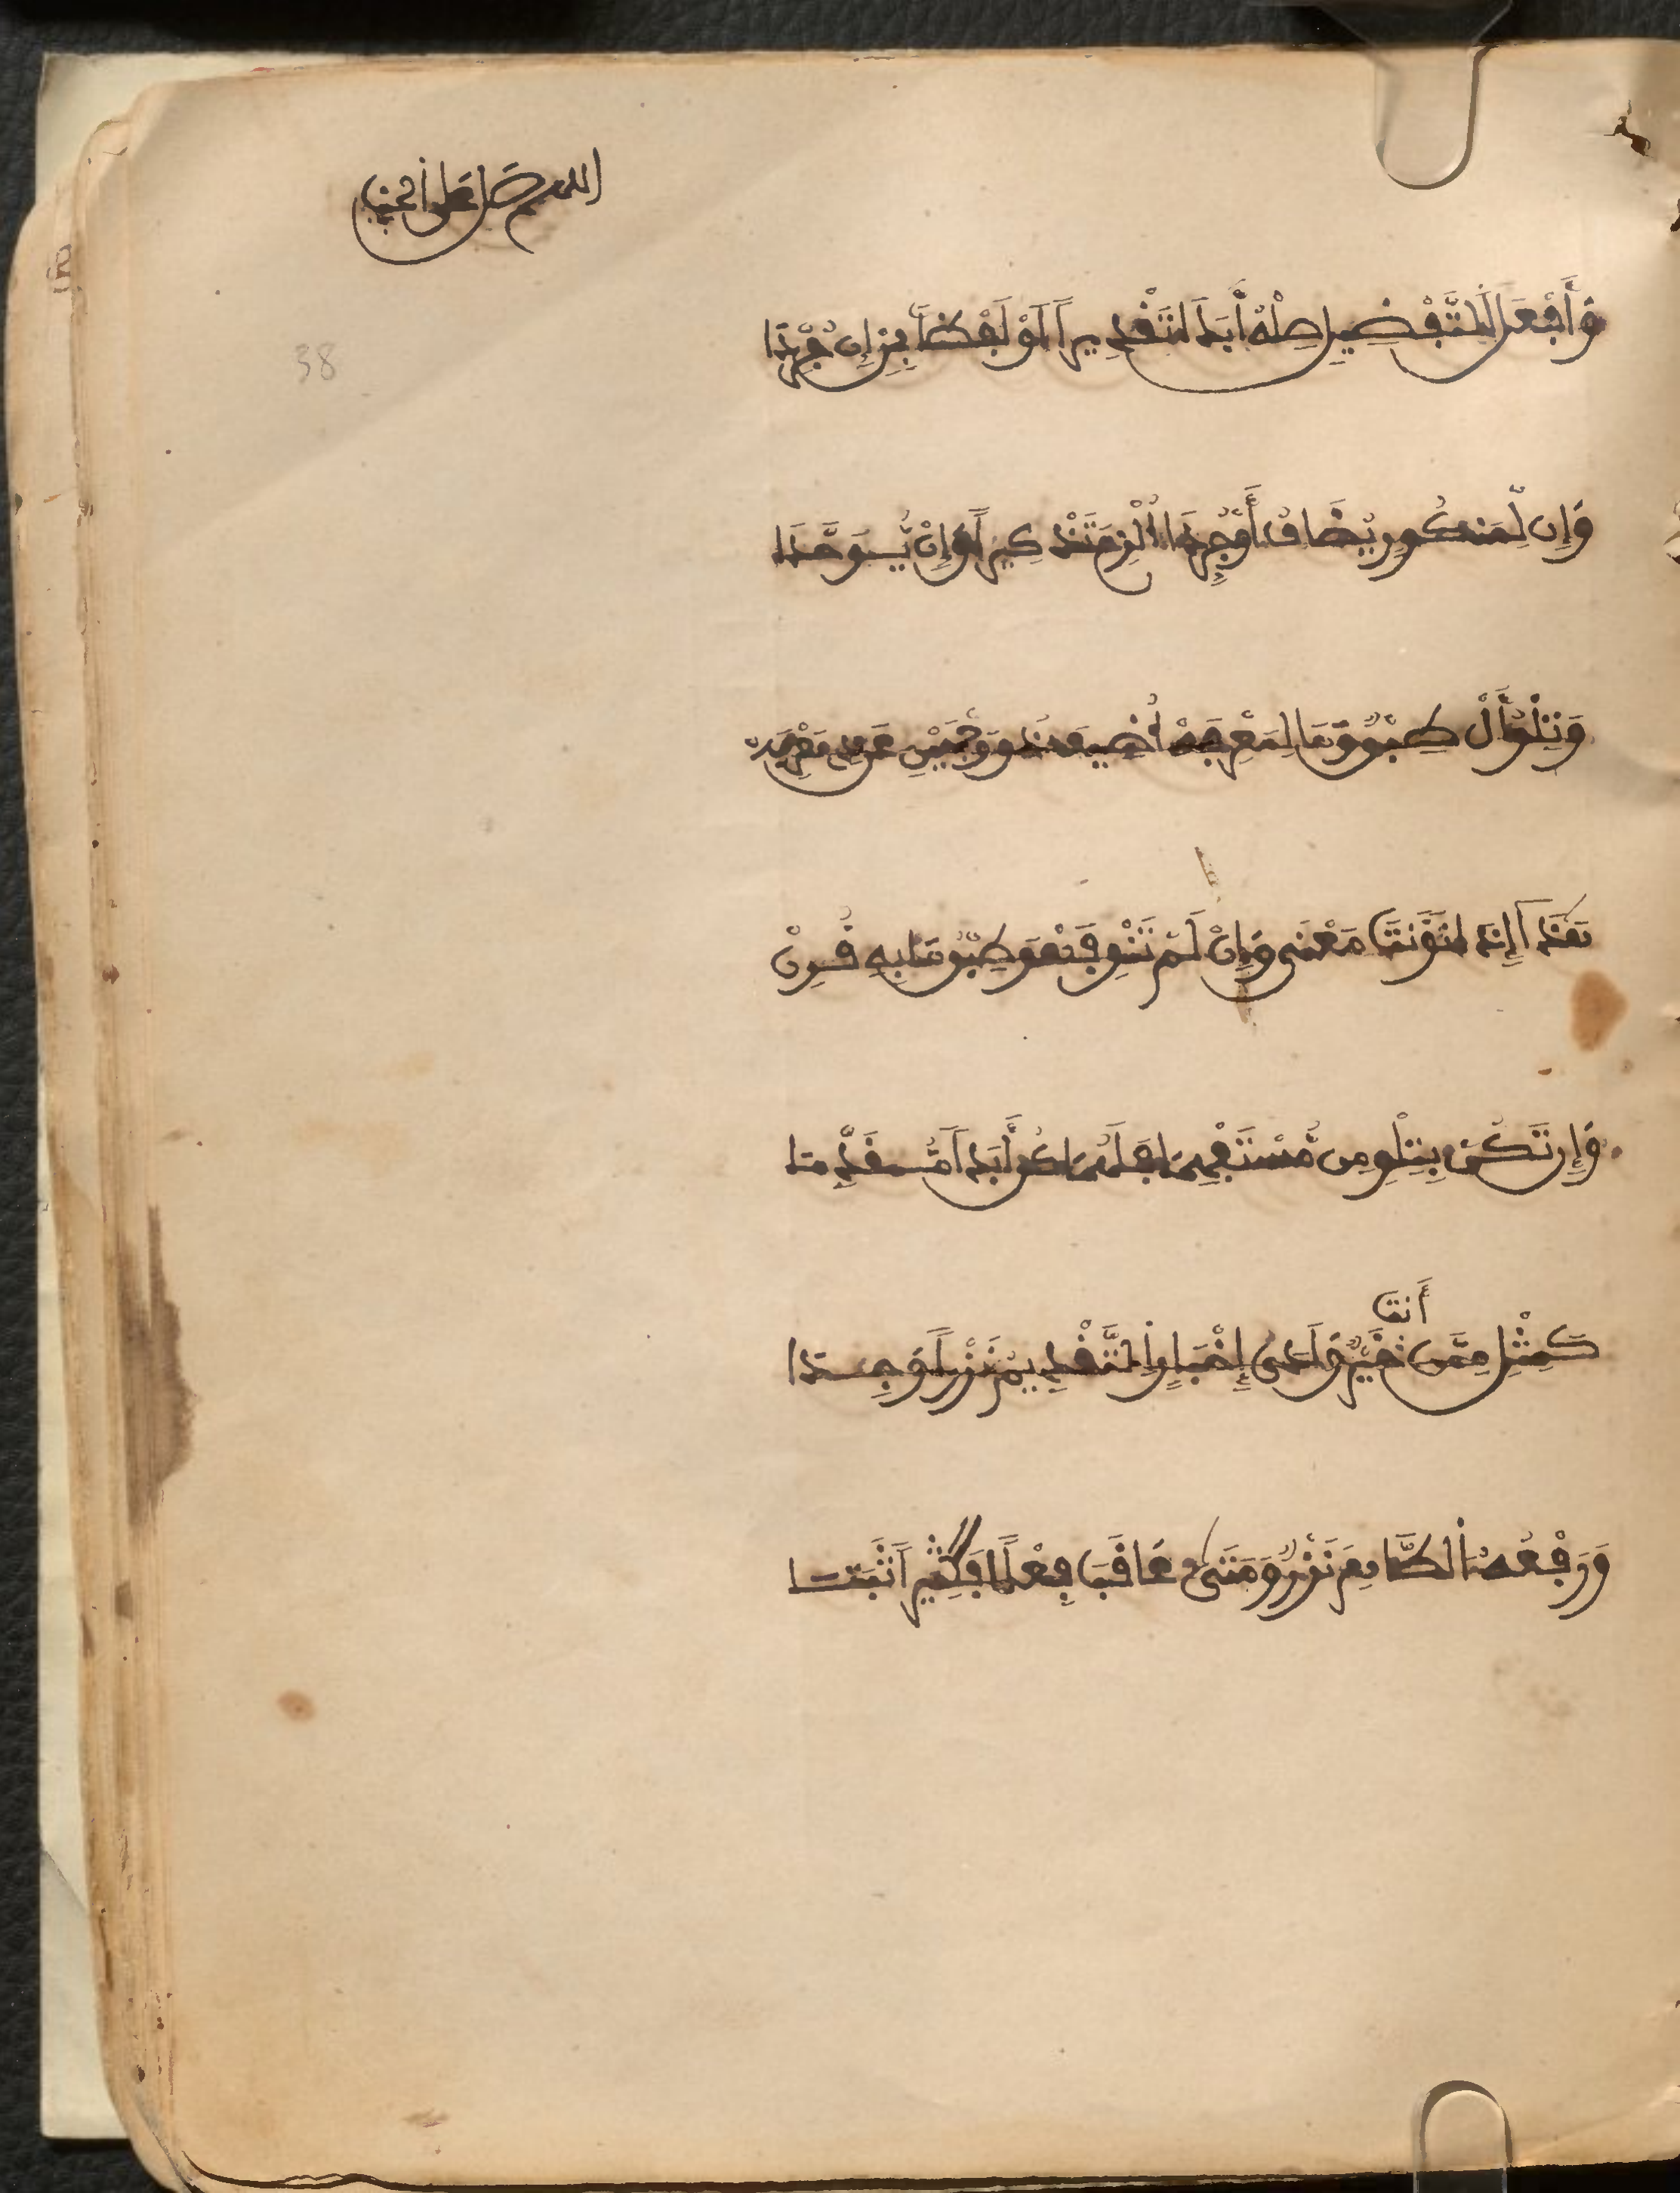 اللهم صل على النبي
38
وَأَفْعَلَ التَّفْضِيلِ صِلْهُ أَبَدَا تَقْدِيراً أَوْ لَفْظاً بِمِنْ إِنْ جُرِّدَا
وَإِن لِّمَنْكُورٍ يُضَافُ أَوْ جُرِّدَا أُلْزِمَ تَذْكِيراً وَإِنْ يُّوَحَّدَا
وَتِلْوُ أَلْ طِبْقٌ وَمَا لِمَعْرِفَهْ أُضِيفَ ذُو وَجْهَيْنِ عَن ذِي مَعْرِفَهْ
هَذَا إِذَا نَوَيْتَ مَعْنَى مِنْ وَإِنْ لَمْ تَنْوِ فَهْوَ طِبْقُ مَا بِهِ قُرِنْ
وَإِن تَكُنْ بِتِلْوِ مِن مُّسْتَفْهِمَا فَلَهُمَا كُنْ أَبَداً مُّقَدِّمَا
كَمِثْلِ مِمَّن أَنتَ خَيْرٌ وَلَدَى إِخْبَارٍ التَّقْدِيمُ نَزْراً وُجِدَا
وَرَفْعُهُ الظَّاهِرَ نَزْرٌ وَمَتَى عَاقَبَ فِعْلاً فَكَثِيراً ثَبَتَا